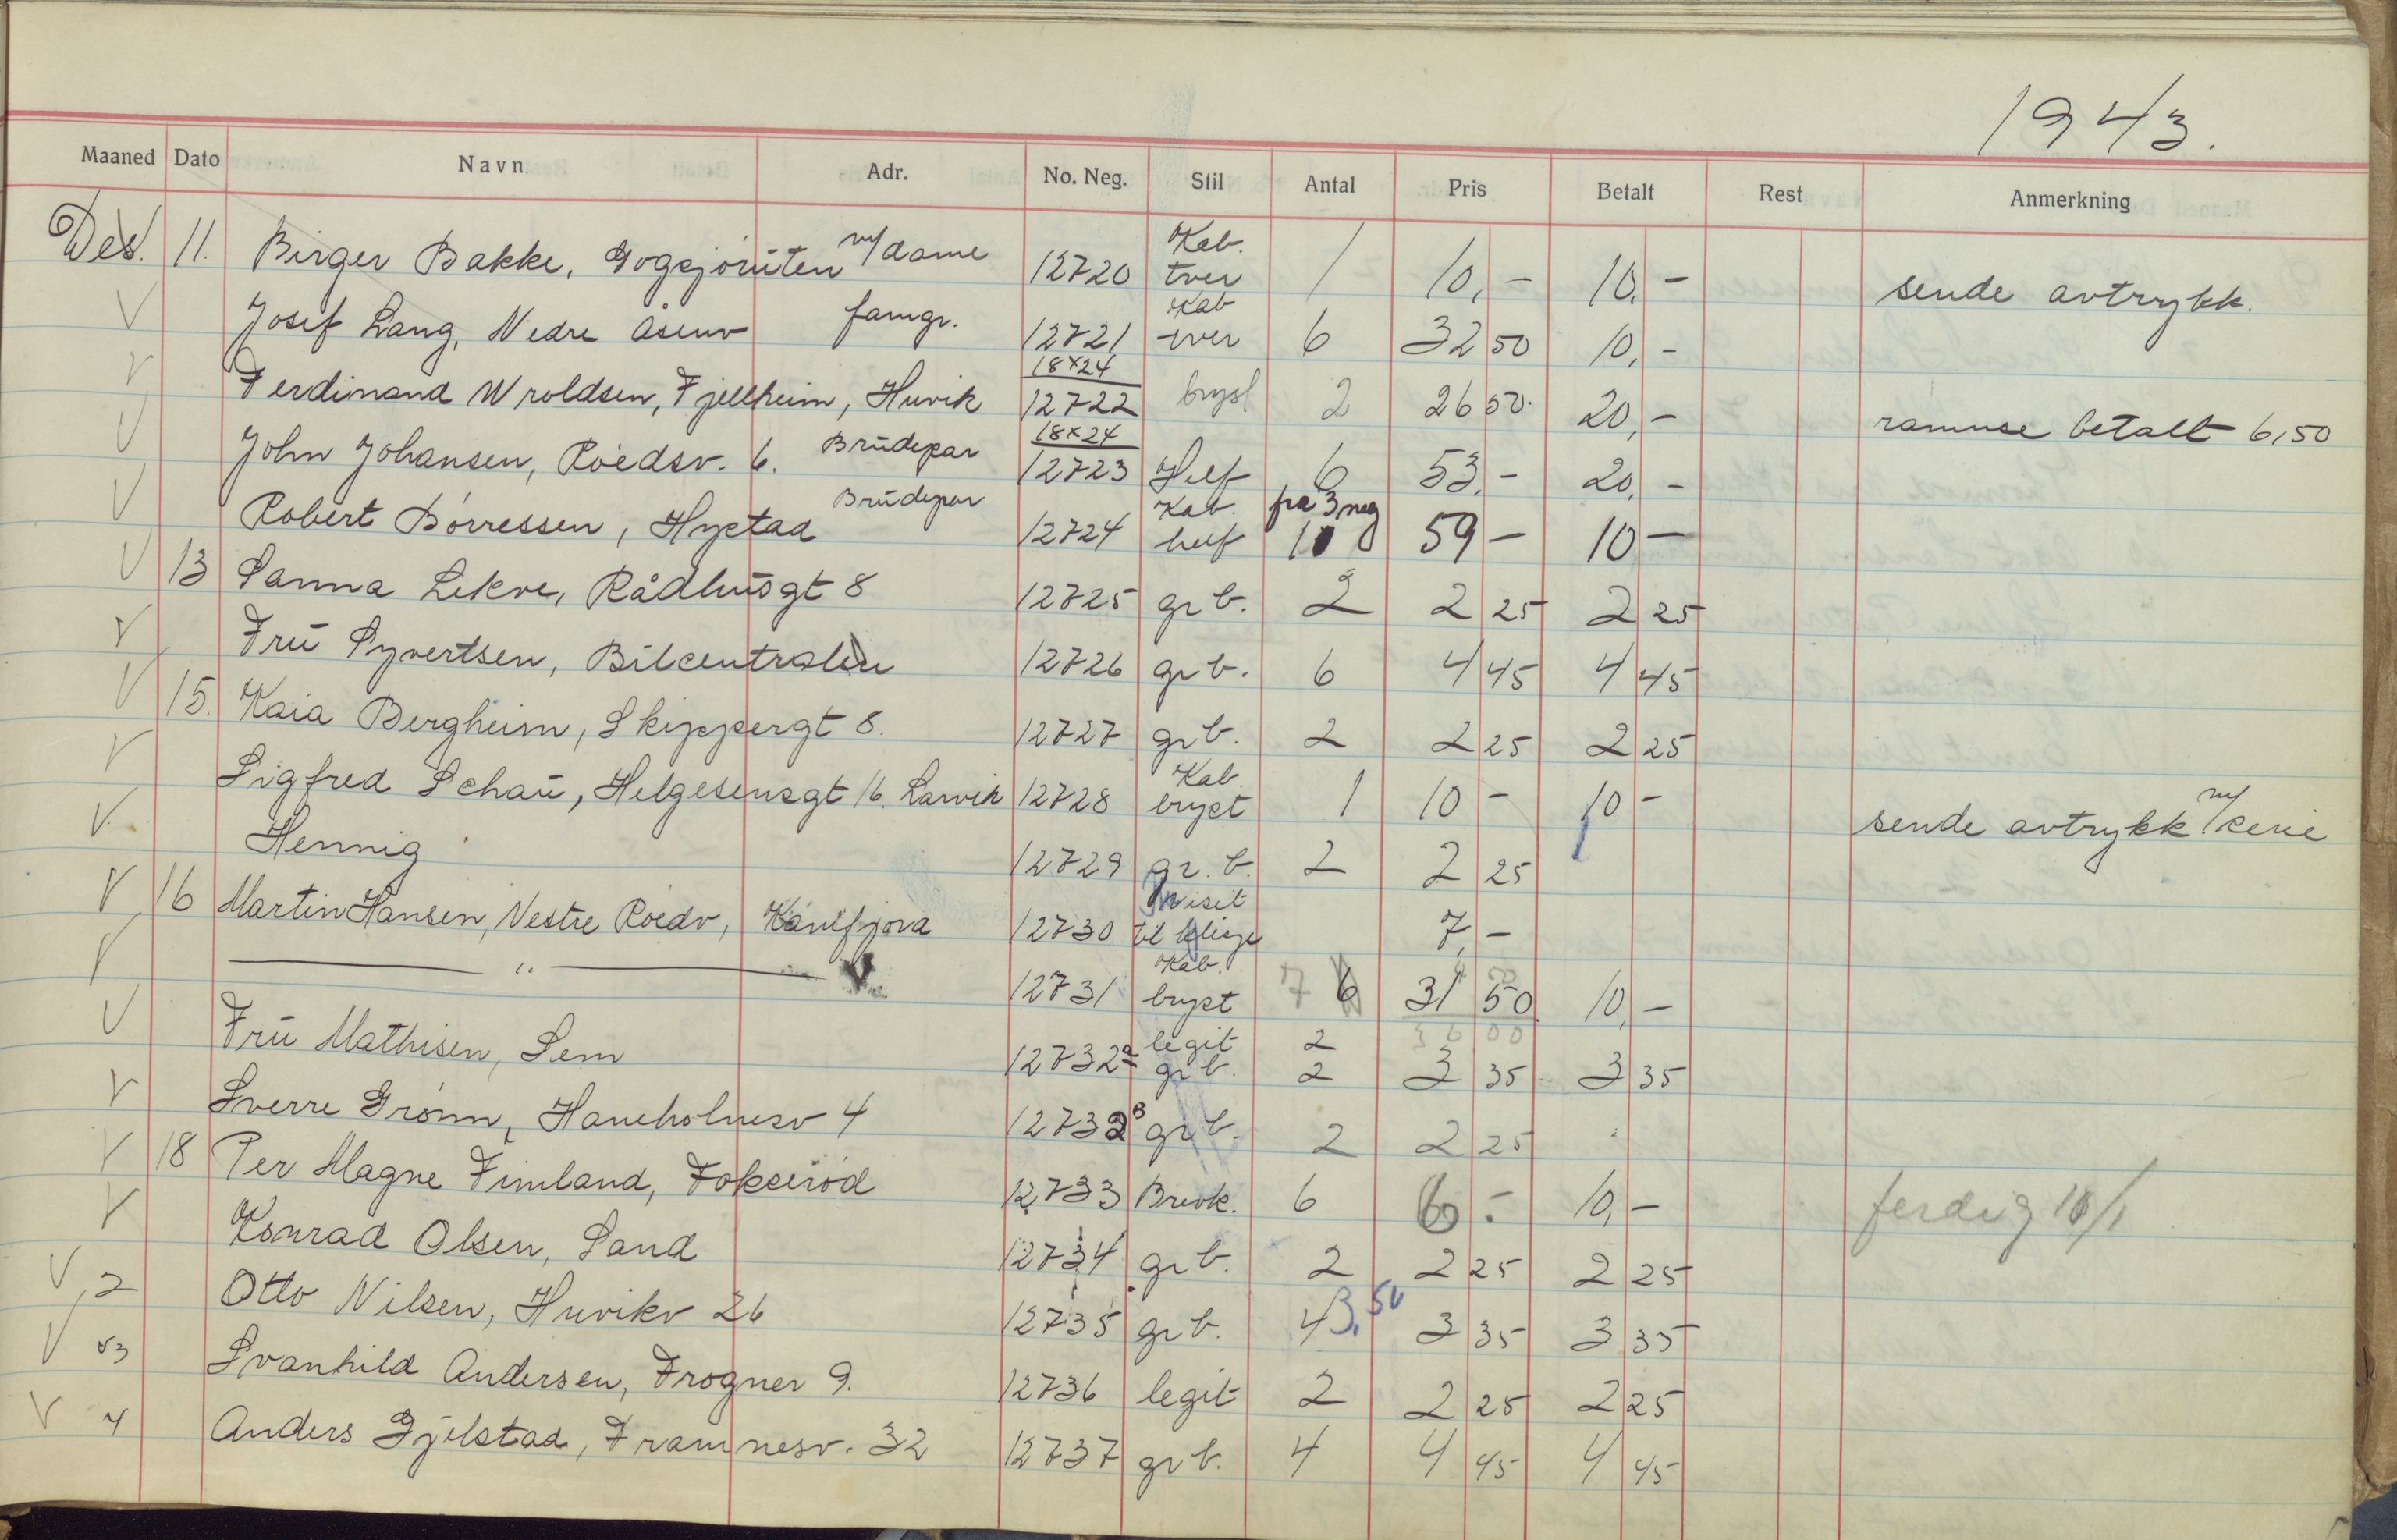 1943.
Maaned Dato Navn Adr. No. Neg. Stil Antal Pris Betalt Rest Anmerkning
Des. 11. Birger Bakke, Gogsjøruten m/dame 12720 Kab. tver 1 10,- 10,- sende avtrykk.
V Josef Lang, Nedre Åsenv famgr. 12721 Kab tver 6 32 50 10,-
V Ferdinand Wroldsen, Fjellheim, Huvik 18x24 12722 bryst 2 26 50. 20,- ramme betalt 6,50
V John Johansen, Roedsv. 6. Brudepar 18x24 12723 Helf 6 53,- 20,-
V Robert Børressen, Hystad Brudepar 12724 Kab. helf fra 3 neg 10 59 - 10 -
V 13 Sanna Lekve, Rådhusgt 8 12725 gr b. 2 2 25 2 25
V Fru Syvertsen, Bilcentralen 12726 gr b. 6 4 45 4 45
V 15. Kaia Bergheim, Skippergt 8. 12727 gr b. 2 2 25 2 25
V Sigfred Schau, Helgesensgt 16. Larvik 12728 Kab. bryst 1 10 - 10 - sende avtrykk m/serie
V Hennig 12729 gr. b. 2 2 25
V 16 Martin Hansen, Vestre Roedv, 12730 visit til klisje 7,-
V — " — 12731 Kab. bryst 7 6 31 50 10,-
36 00
V Fru Mathisen, Sem 12732a legit gr b. 2 2 3 35 3 35
V Sverre Grønn, Haneholmesv 4 12732B gr b. 2 2 25
V 18 Per Magne Fimland, Fokserød 12733 Brevk. 6 6 - 10,- ferdig 10/1
V Konrad Olsen, Sand 12734 gr b. 2 2 25 2 25
V 2 Otto Nilsen, Huvikv 26 12735 gr b. 4 3,50 3 35 3 35
V 3 Svanhild Andersen, Frogner 9. 12736 legit 2 2 25 2 25
V 4 Anders Gjelstad, Framnesv. 32 12737 gr b. 4 4 45 4 45